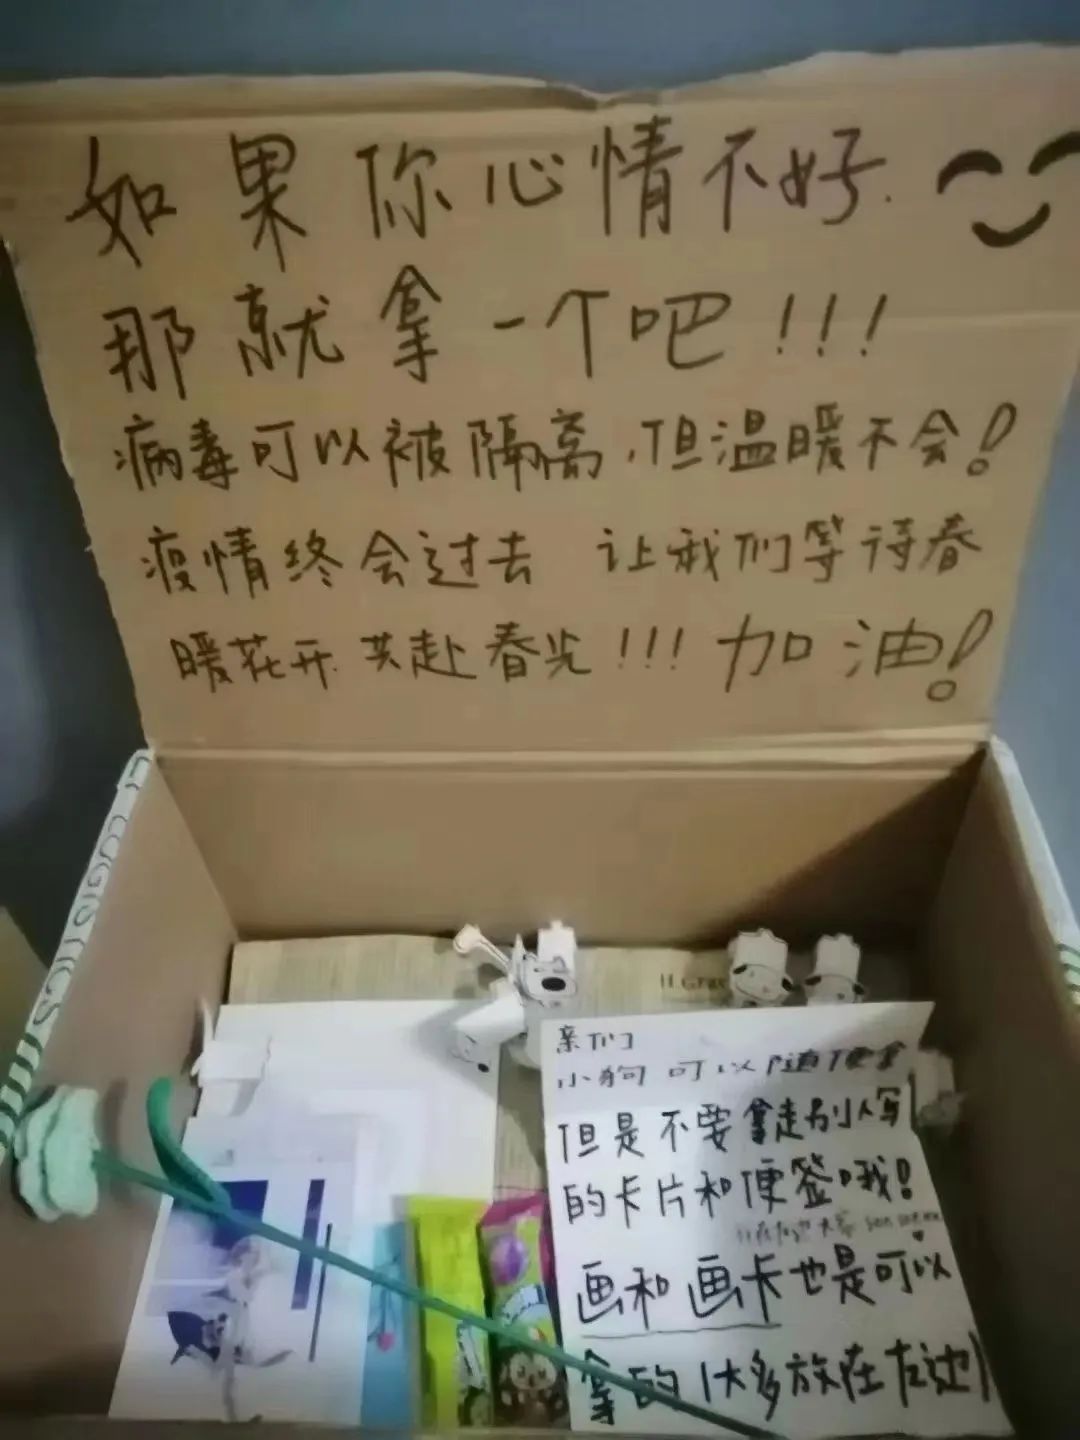 如果你心情不好.
那就拿一个吧!!!
病毒可以被隔离,但温暖不会!
疫情终会过去 让我们等待春
暖花开.共赴春光!!!加油!
LOGISTICS
亲们
小狗可以随便拿
但是不要拿走别人写
的卡片和便签哦!
画和画卡也是可以
拿的(大多放在左边)